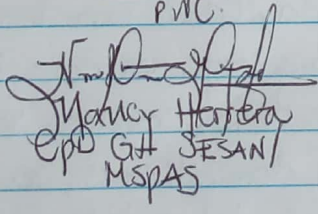 PNC.
Yancy Herrera
EPD GH SESAN/
MSPAS